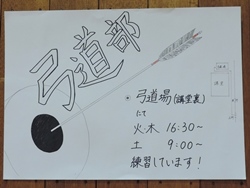 弓道部
弓道場(講堂裏)
にて
火・木 16:30~
土 9:00~
練習しています!